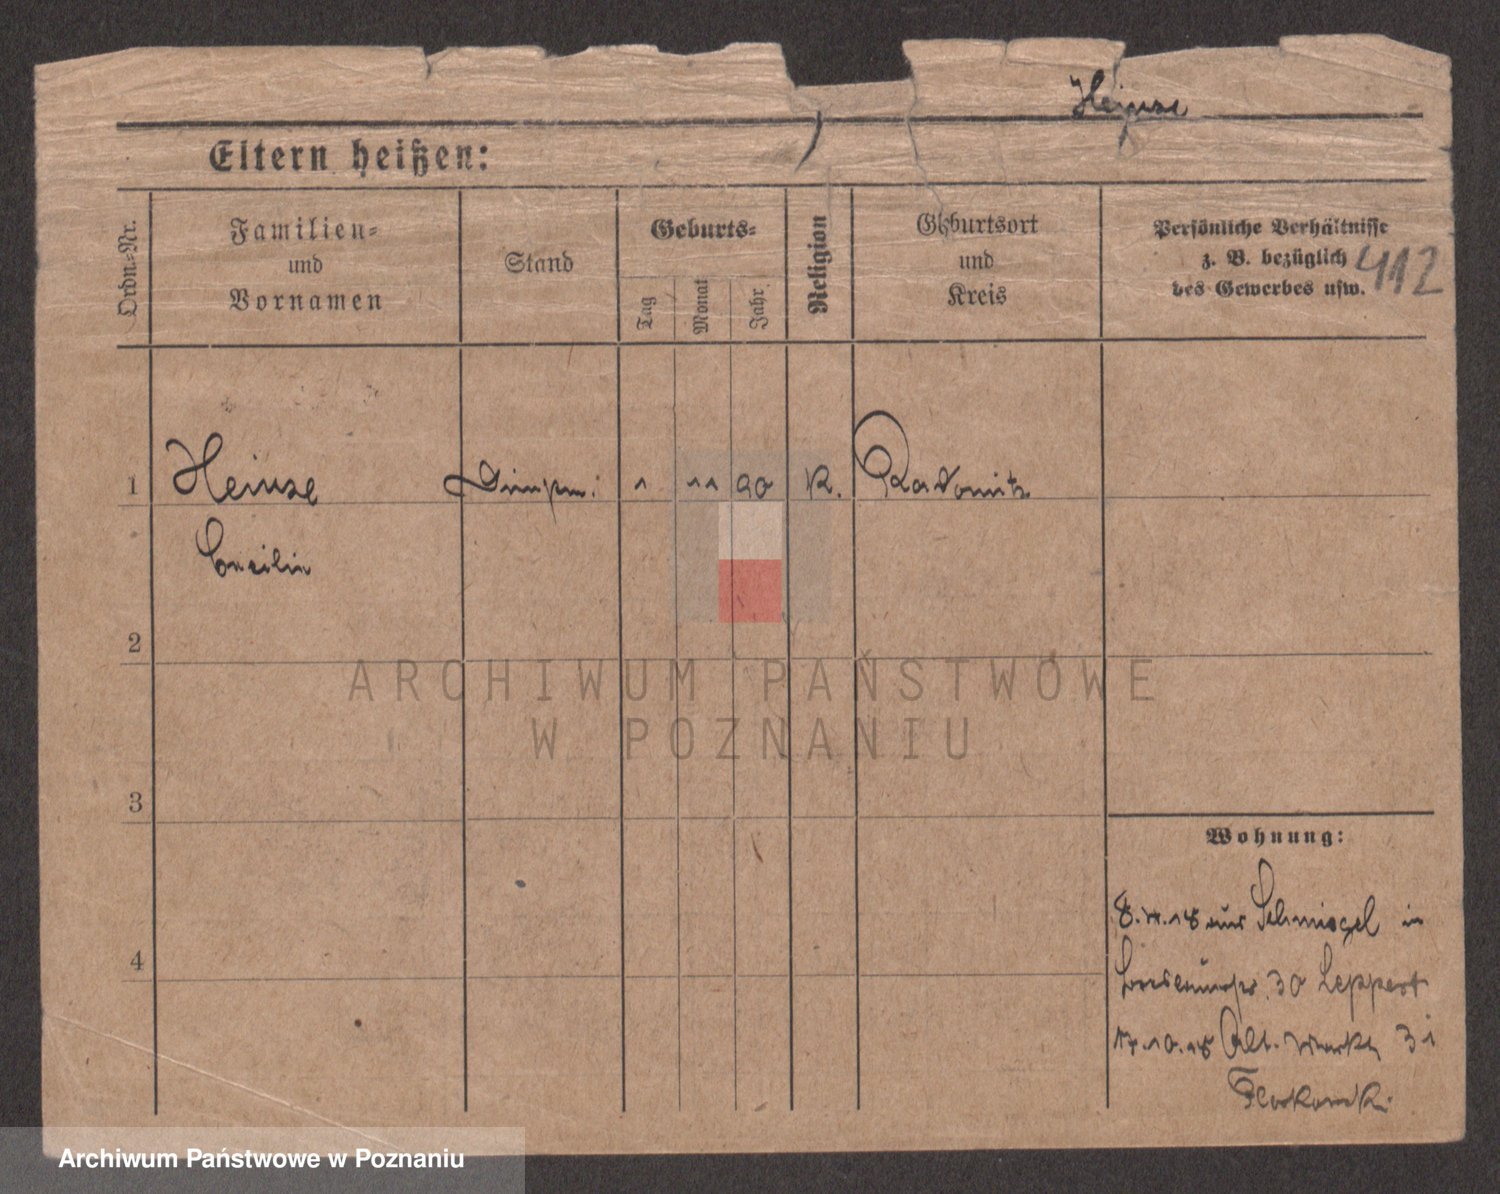 Heinze
Eltern heißen:
Ordn.-Nr.
Familien-
und
Vornamen
Stand
Geburts-
Tag
Monat
Jahr
Religion
Geburtsort
und
Kreis
Persönliche Verhältnisse
z. B. bezüglich
des Gewerbes usw.
412
1 Heinze 1 11 90 K. Radomitz
Cecilie
2
3
4
Wohnung:
18 aus Schmiegel in
30 Leppert
17.10.18 Alt. Markt 31
ARCHIWUM PAŃSTWOWE
W POZNANIU
Archiwum Państwowe w Poznaniu